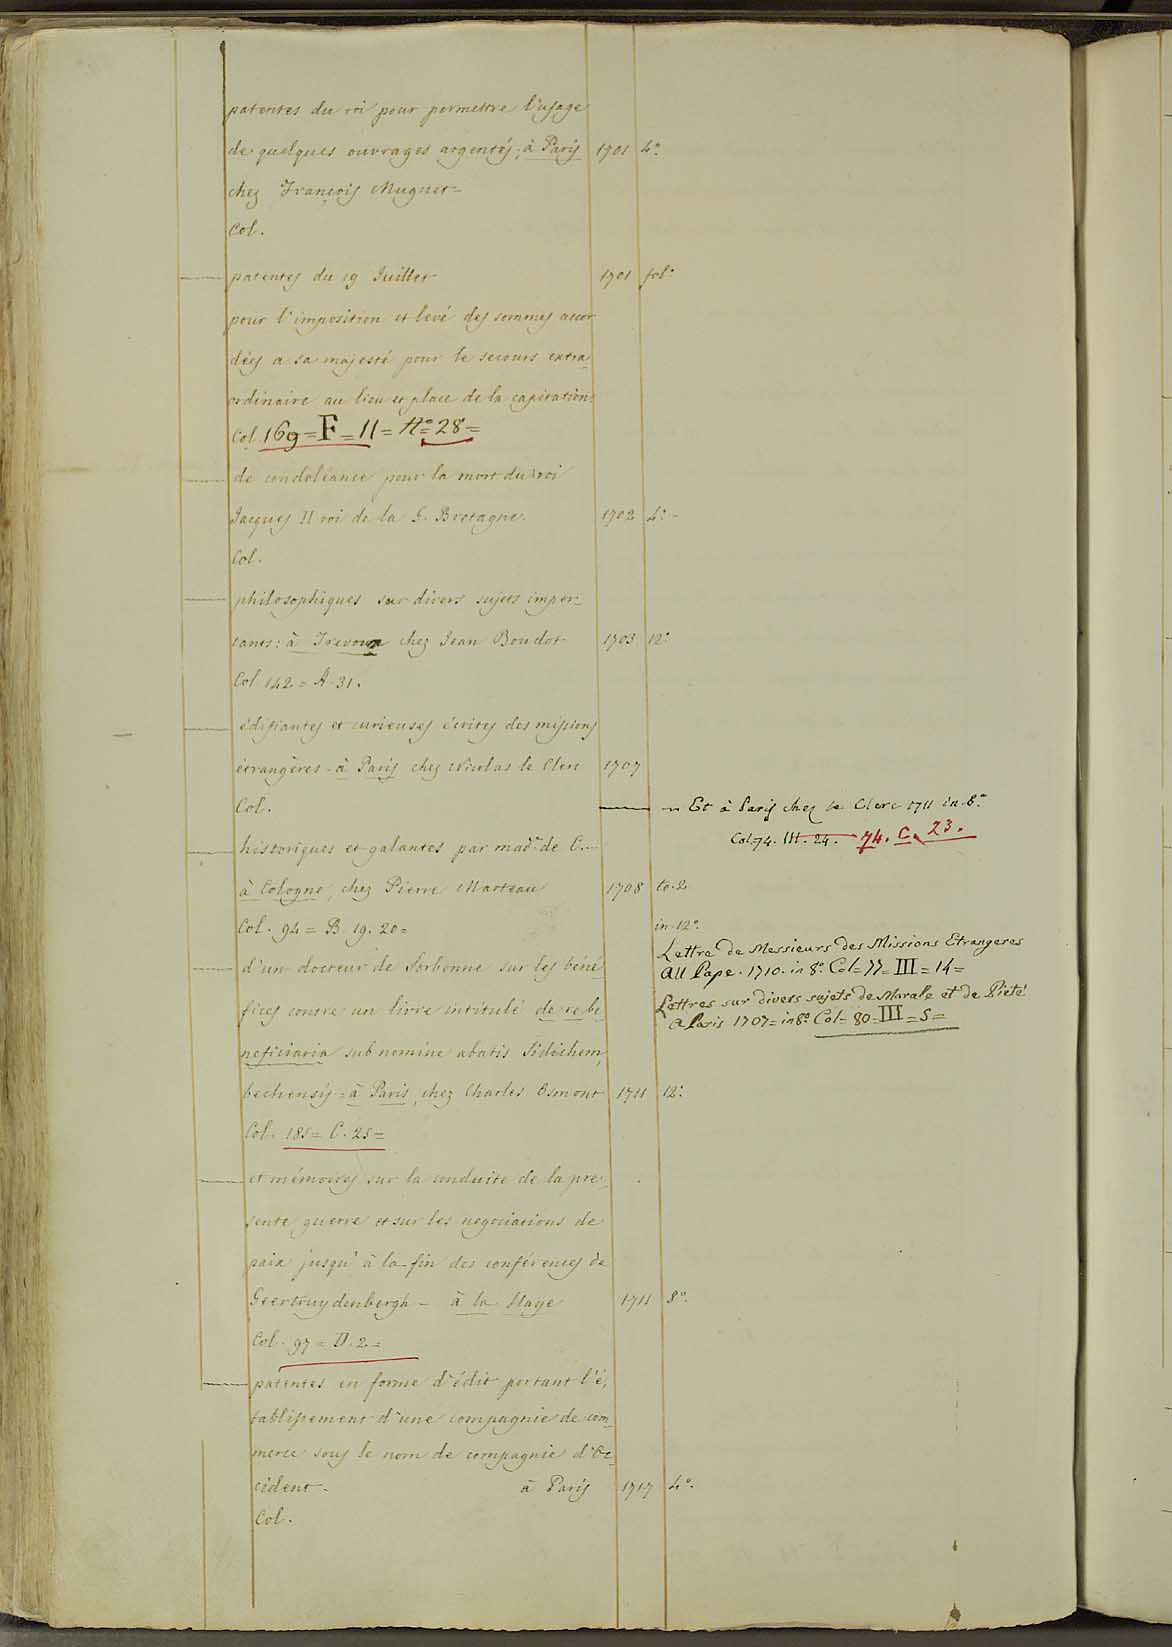 patentes du roi pour permettre l'usage
de quelques ouvrages argentés, à Paris 1701 4°
chez François Muguet =
Col.
patentes du 19 Juillet 1701 fol°
pour l'imposition et levé des sommes accor
dées a sa majesté pour le secours extra
ordinaire au lieu et place de la capitation.
Col. 169 = F = 11 = A° = 28 =
de condoléance pour la mort du roi
Jacques II roi de la G. Bretagne. 1702 4° -
Col.
philosophiques sur divers sujets impor-
tants: à Trevoux chez Jean Boudot 1703 12°
Col 142 = A. 31.
édifiantes et curieuses écrites des missions
étrangères - à Paris chez Nicolas le Clerc 1707
Col. — " Et à Paris chez le Clerc 1711 in-8°
Col. 74. III. 24. 74. C. 23.
historiques et galantes par mad.e de C...
à Cologne, chez Pierre Marteau 1708 to. 2
Col. 94 = B. 19. 20 = in 12°
Lettre de Messieurs des Missions Etrangeres
au Pape. 1710. in 8° Col = 77 = III = 14 =
Lettres sur divers sujets de Morale et de Piété
a Paris 1707 = in 8° Col = 80 = III = 5 =
d'un docteur de Sorbonne sur les béné
fices contre un livre intitulé de re be
neficiaria sub nomine abatis Sidichem,
bechensis = à Paris, chez Charles Osmont 1711 12°
Col. 185 = C. 25 =
et mémoires sur la conduite de la pre-
sente guerre et sur les negociations de
paix jusqu'à la fin des conférences de
Geertruydenbergh - à la Haye 1711 8°
Col. 97 = D. 2 =
patentes en forme d'édit portant l'é,
tablissement d'une compagnie de com,
merce sous le nom de compagnie d'Oc,
cident - à Paris 1717 4°
Col.